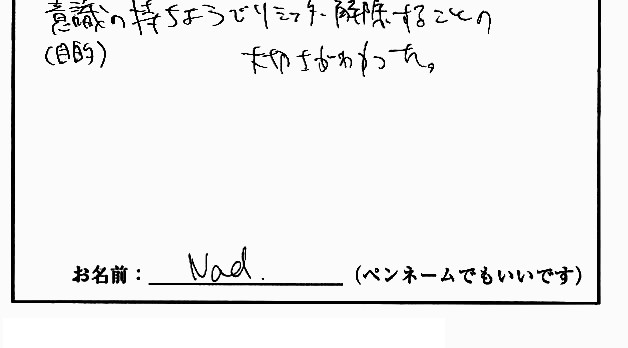 意識の持ちようでリミッター解除することの
(目的)
大切さがわかった。
お名前： Nad. （ペンネームでもいいです）